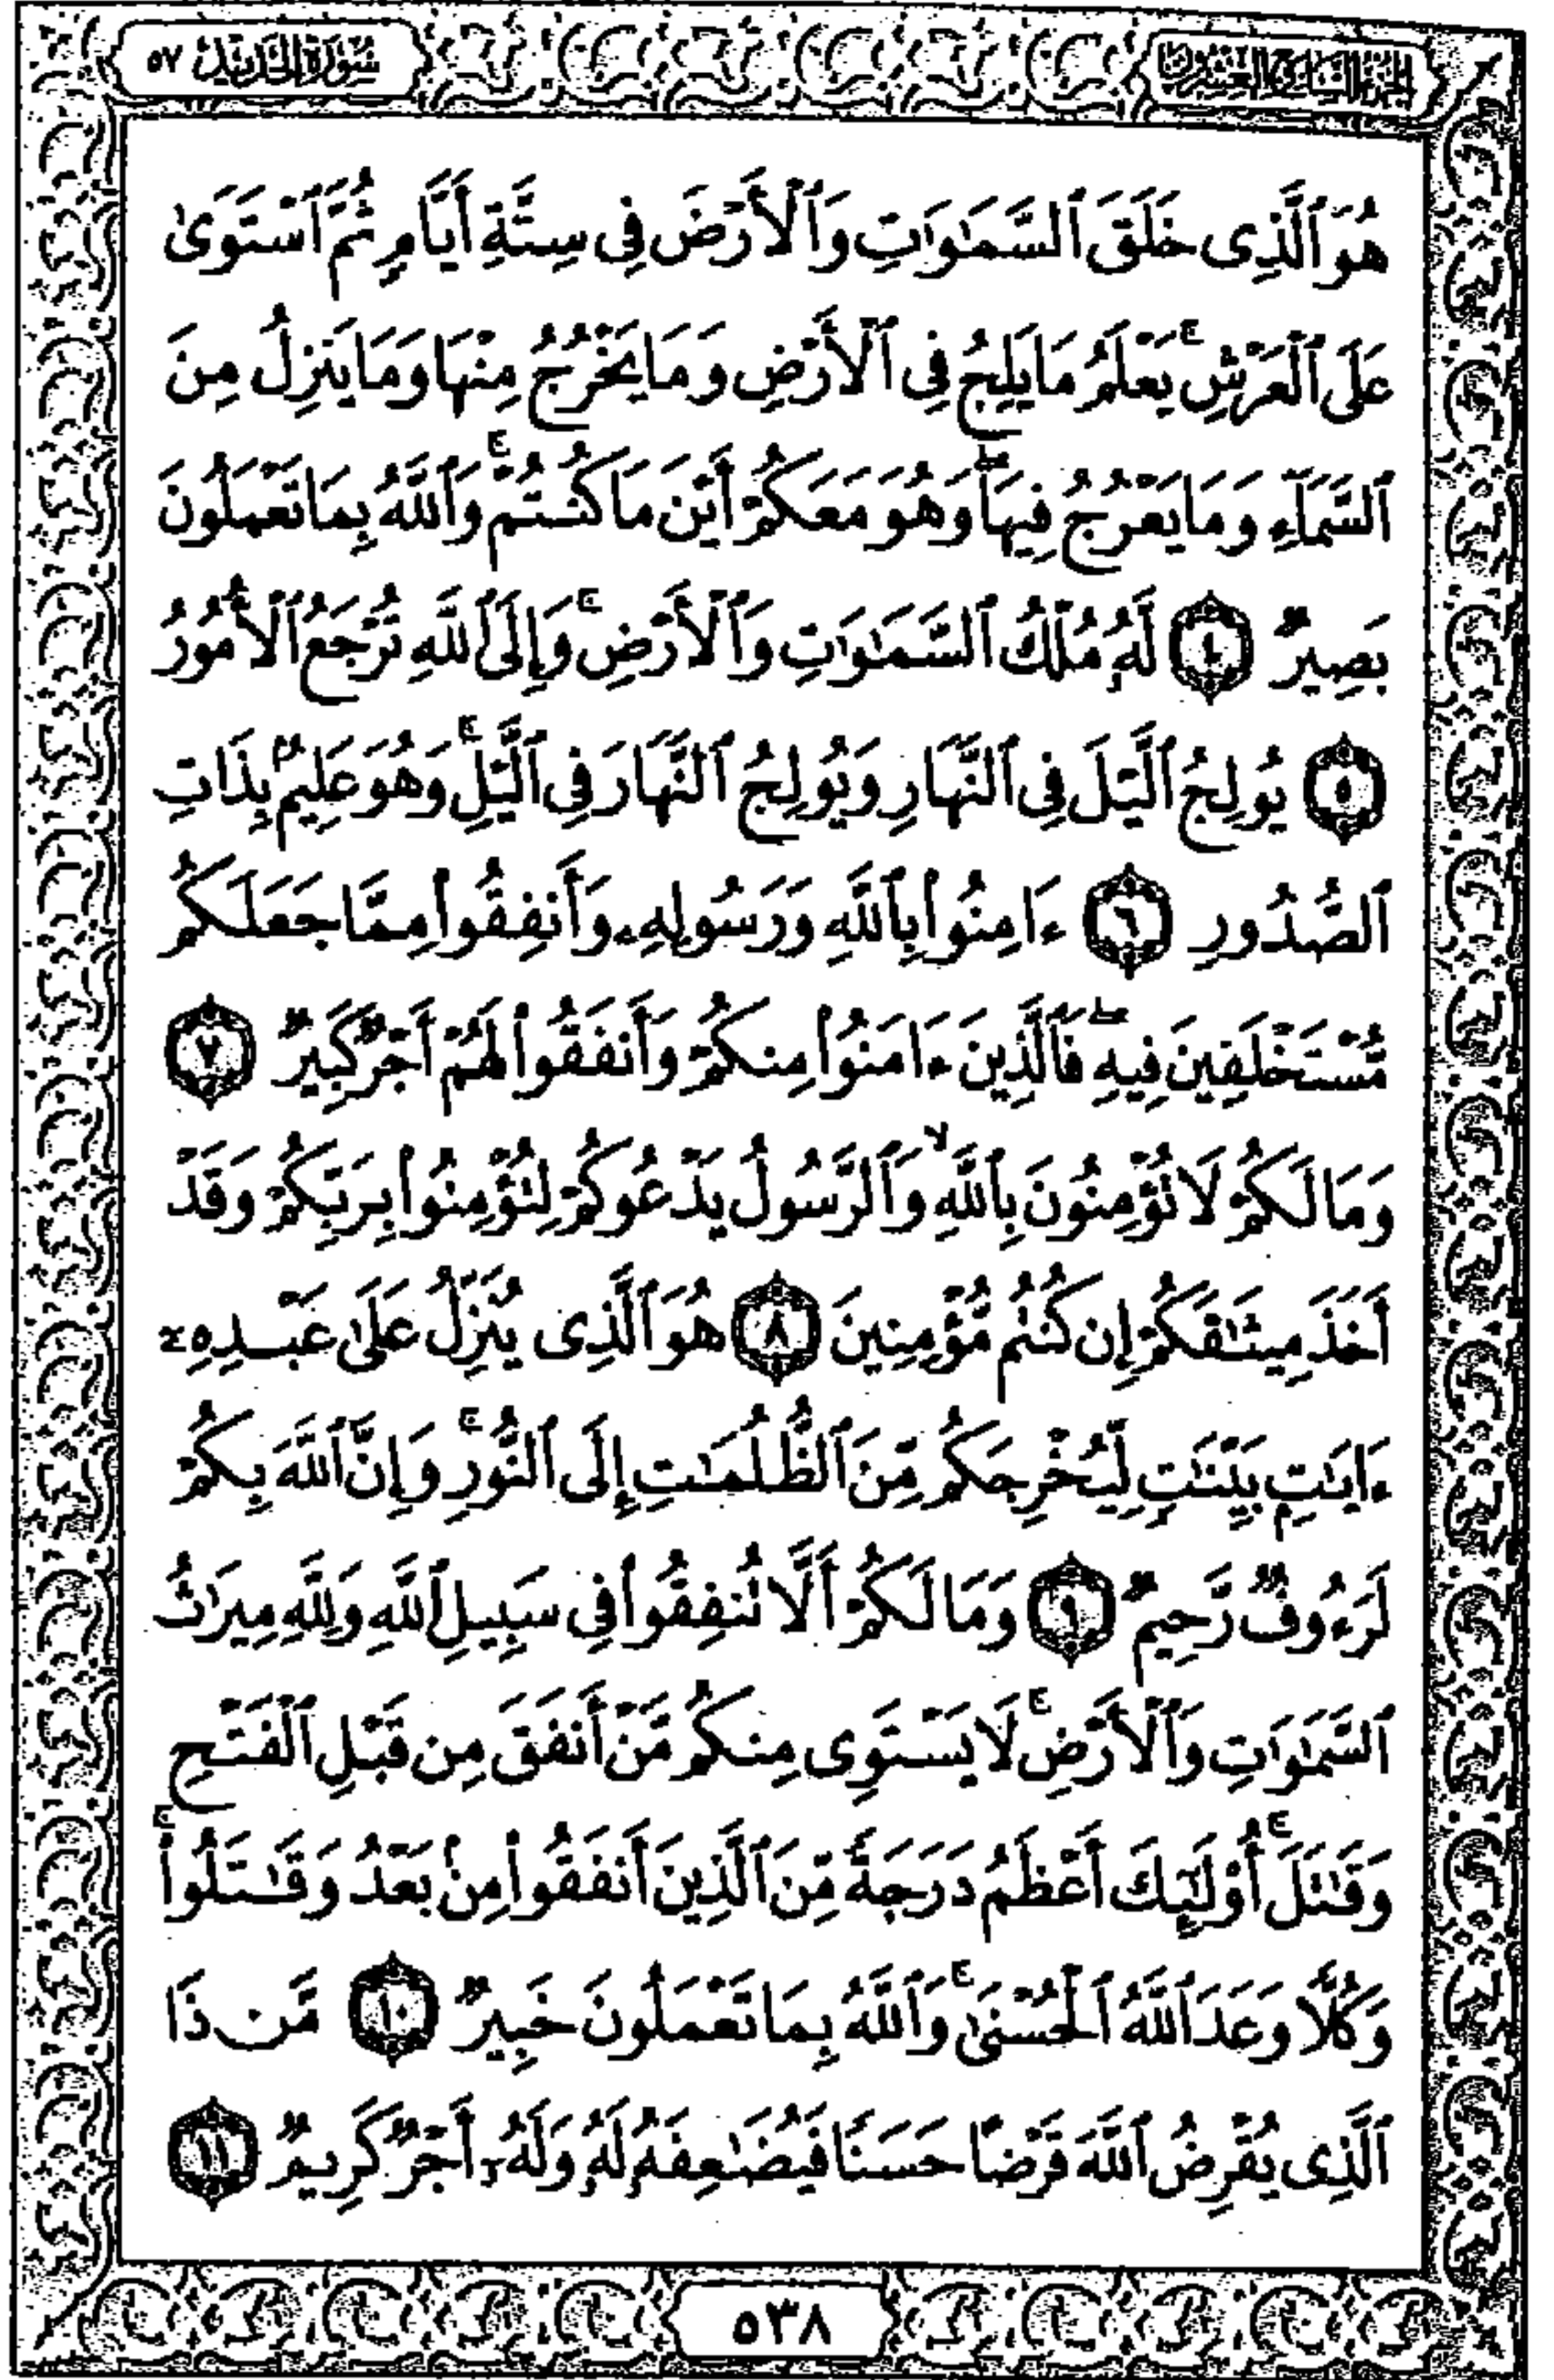 الجزء السابع والعشرون
سورة الحديد ٥٧
هُوَ ٱلَّذِى خَلَقَ ٱلسَّمَٰوَٰتِ وَٱلْأَرْضَ فِى سِتَّةِ أَيَّامٍ ثُمَّ ٱسْتَوَىٰ
عَلَى ٱلْعَرْشِ ۚ يَعْلَمُ مَا يَلِجُ فِى ٱلْأَرْضِ وَمَا يَخْرُجُ مِنْهَا وَمَا يَنزِلُ مِنَ
ٱلسَّمَآءِ وَمَا يَعْرُجُ فِيهَا ۖ وَهُوَ مَعَكُمْ أَيْنَ مَا كُنتُمْ ۚ وَٱللَّهُ بِمَا تَعْمَلُونَ
بَصِيرٌ ٤ لَّهُۥ مُلْكُ ٱلسَّمَٰوَٰتِ وَٱلْأَرْضِ ۚ وَإِلَى ٱللَّهِ تُرْجَعُ ٱلْأُمُورُ
٥ يُولِجُ ٱلَّيْلَ فِى ٱلنَّهَارِ وَيُولِجُ ٱلنَّهَارَ فِى ٱلَّيْلِ ۚ وَهُوَ عَلِيمٌۢ بِذَاتِ
ٱلصُّدُورِ ٦ ءَامِنُوا۟ بِٱللَّهِ وَرَسُولِهِۦ وَأَنفِقُوا۟ مِمَّا جَعَلَكُم
مُّسْتَخْلَفِينَ فِيهِ ۖ فَٱلَّذِينَ ءَامَنُوا۟ مِنكُمْ وَأَنفَقُوا۟ لَهُمْ أَجْرٌ كَبِيرٌ ٧
وَمَا لَكُمْ لَا تُؤْمِنُونَ بِٱللَّهِ ۙ وَٱلرَّسُولُ يَدْعُوكُمْ لِتُؤْمِنُوا۟ بِرَبِّكُمْ وَقَدْ
أَخَذَ مِيثَٰقَكُمْ إِن كُنتُم مُّؤْمِنِينَ ٨ هُوَ ٱلَّذِى يُنَزِّلُ عَلَىٰ عَبْدِهِۦٓ
ءَايَٰتٍۭ بَيِّنَٰتٍ لِّيُخْرِجَكُم مِّنَ ٱلظُّلُمَٰتِ إِلَى ٱلنُّورِ ۚ وَإِنَّ ٱللَّهَ بِكُمْ
لَرَءُوفٌ رَّحِيمٌ ٩ وَمَا لَكُمْ أَلَّا تُنفِقُوا۟ فِى سَبِيلِ ٱللَّهِ وَلِلَّهِ مِيرَٰثُ
ٱلسَّمَٰوَٰتِ وَٱلْأَرْضِ ۚ لَا يَسْتَوِى مِنكُم مَّنْ أَنفَقَ مِن قَبْلِ ٱلْفَتْحِ
وَقَٰتَلَ ۚ أُو۟لَٰٓئِكَ أَعْظَمُ دَرَجَةً مِّنَ ٱلَّذِينَ أَنفَقُوا۟ مِنۢ بَعْدُ وَقَٰتَلُوا۟ ۚ
وَكُلًّا وَعَدَ ٱللَّهُ ٱلْحُسْنَىٰ ۚ وَٱللَّهُ بِمَا تَعْمَلُونَ خَبِيرٌ ١٠ مَّن ذَا
ٱلَّذِى يُقْرِضُ ٱللَّهَ قَرْضًا حَسَنًا فَيُضَٰعِفَهُۥ لَهُۥ وَلَهُۥٓ أَجْرٌ كَرِيمٌ ١١
٥٣٨